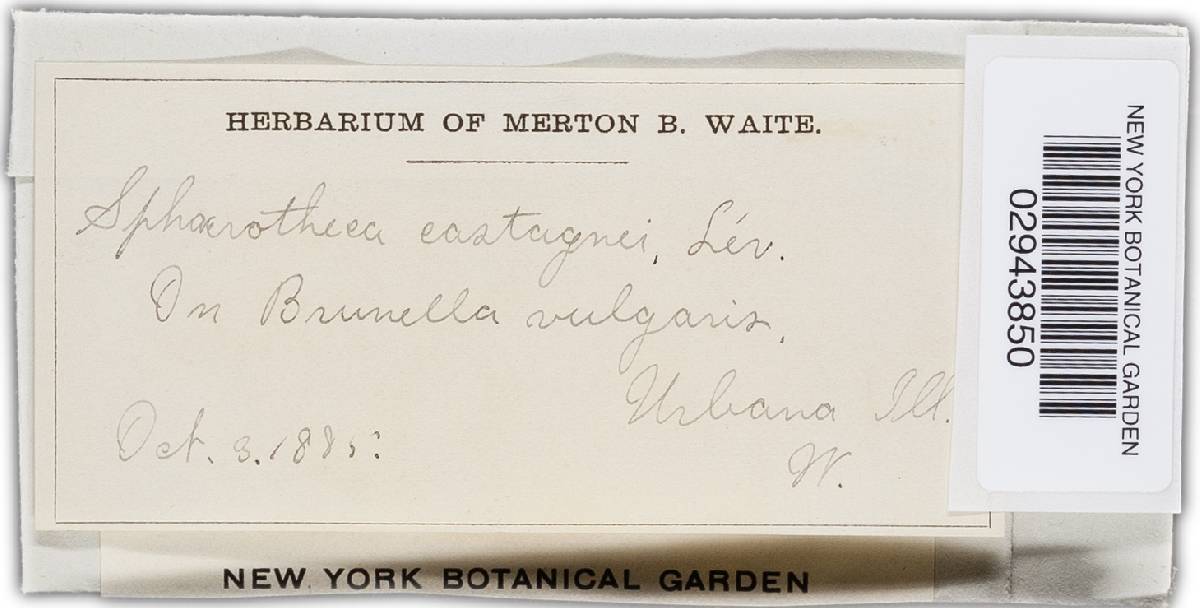 HERBARIUM OF MERTON B. WAITE.
Sphærotheca castagnei, Lév.
On Brunella vulgaris,
Urbana Ill.
Oct. 3. 1885.
W.
NEW YORK BOTANICAL GARDEN
NEW YORK BOTANICAL GARDEN
02943850